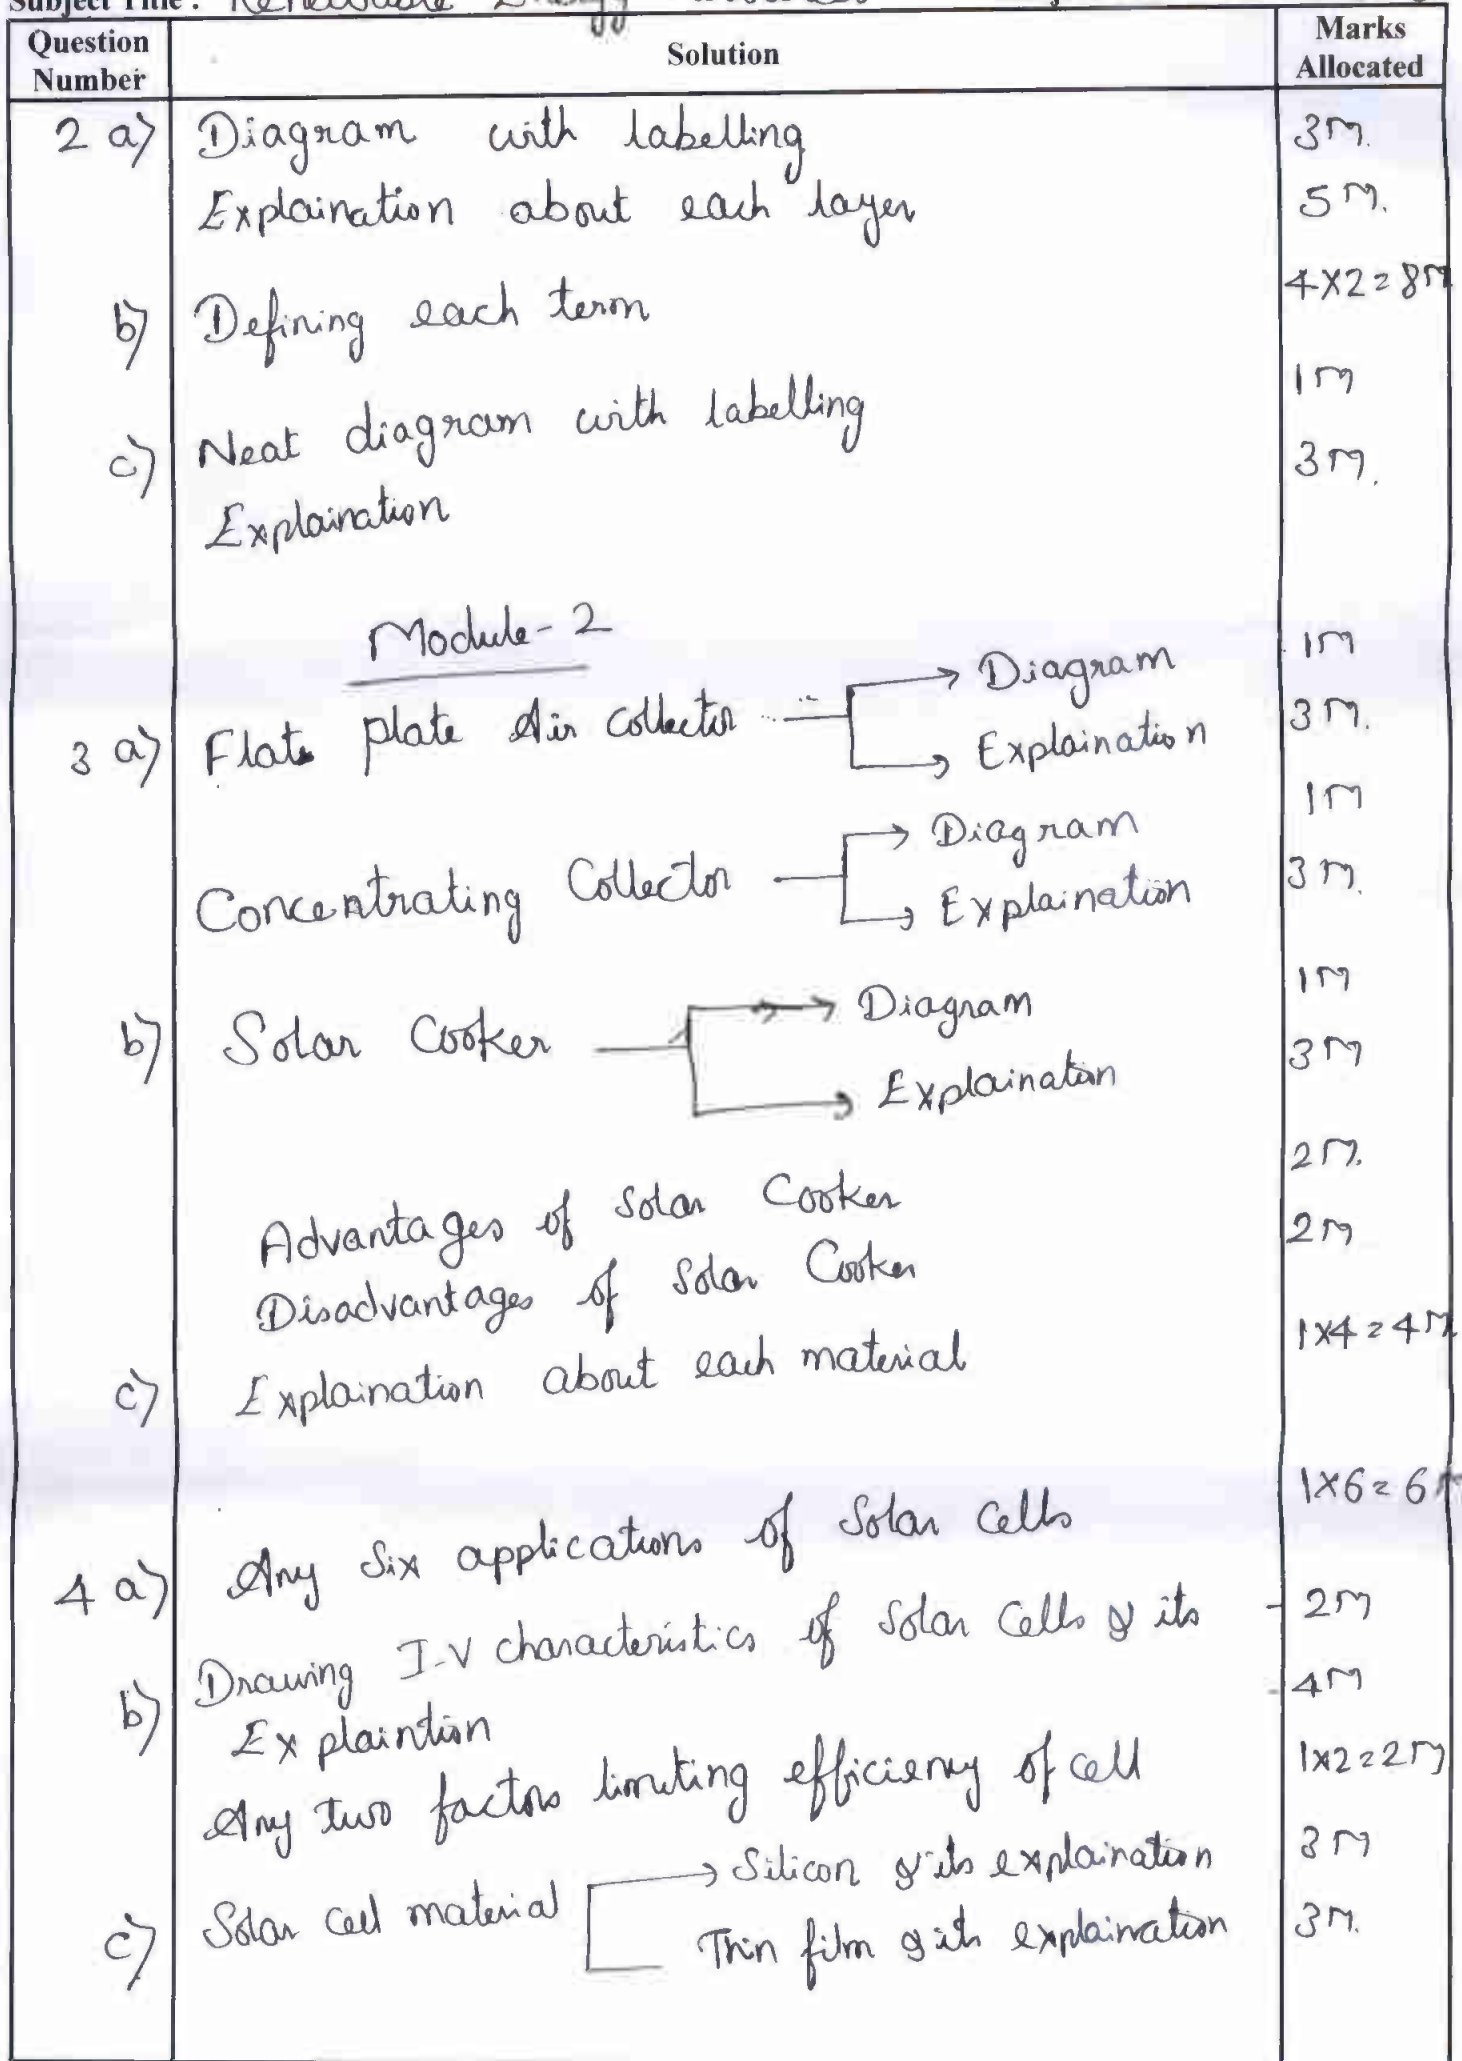 Subject Title : Renewable Energy
Question Number
Solution
Marks Allocated
2 a) Diagram with labelling 3M.
Explaination about each layer 5M.
b) Defining each term 4X2=8M
c) Neat diagram with labelling 1M
Explaination 3M.
Module-2
3 a) Flat plate Air Collector Diagram 1M
Explaination 3M.
Concentrating Collector Diagram 1M
Explaination 3M.
b) Solar Cooker Diagram 1M
Explaination 3M
Advantages of Solar Cooker 2M.
Disadvantages of Solar Cooker 2M
c) Explaination about each material 1x4=4M
4 a) Any Six applications of Solar Cells 1X6=6M
b) Drawing I-V characteristics of Solar Cells & its - 2M
Explaintion - 4M
Any two factors limiting efficieny of cell 1x2=2M
c) Solar Cell material Silicon & its explaination 3M
Thin film & its explaination 3M.